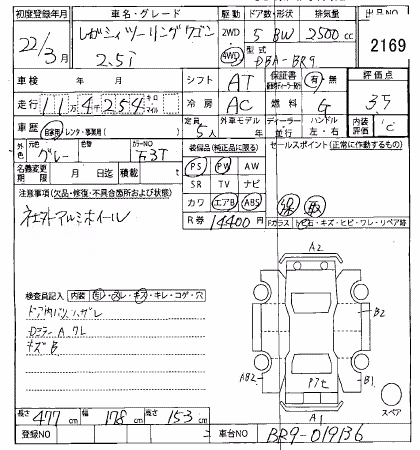 初度登録年月 車名・グレード 駆動 ドア数・形状 排気量 出品NO
22/3月 レガシィツーリングワゴン 2.5i 2WD 4WD 5 BW 2500cc 2169
型式 DBA-BR9
車検 年 月 シフト AT 保証書 有・無 評価点
走行 11万4千254 キロ マイル 冷房 AC 燃料 G 3.5
車歴 自家用・レンタ・事業用( ) 定員 5人 外車モデル 年 ディーラー 並行 ハンドル 左・右 内装評価 C
外色 元色 グレー 色替 カラーNO 53T 装備品(純正品に限る) セールスポイント(正常に作動するもの)
名義変更期限 月 日迄 月 PS PW AW
SR TV ナビ
注意事項(欠品・修復・不具合箇所および状態) カワ エアB ABS 保 取
社外アルミホイール R券 14400円 Fガラス キズ・ヒビ・ワレ・リペア跡
A2
検査員記入 内装 キレ・スレ・キズ・キレ・コゲ・穴
ドア内バリハガレ B2
ワレ
キズB AB2 B1
スペア
A1
長さ 477cm 幅 178cm 高さ 153cm
登録NO 車台NO BR9-019136